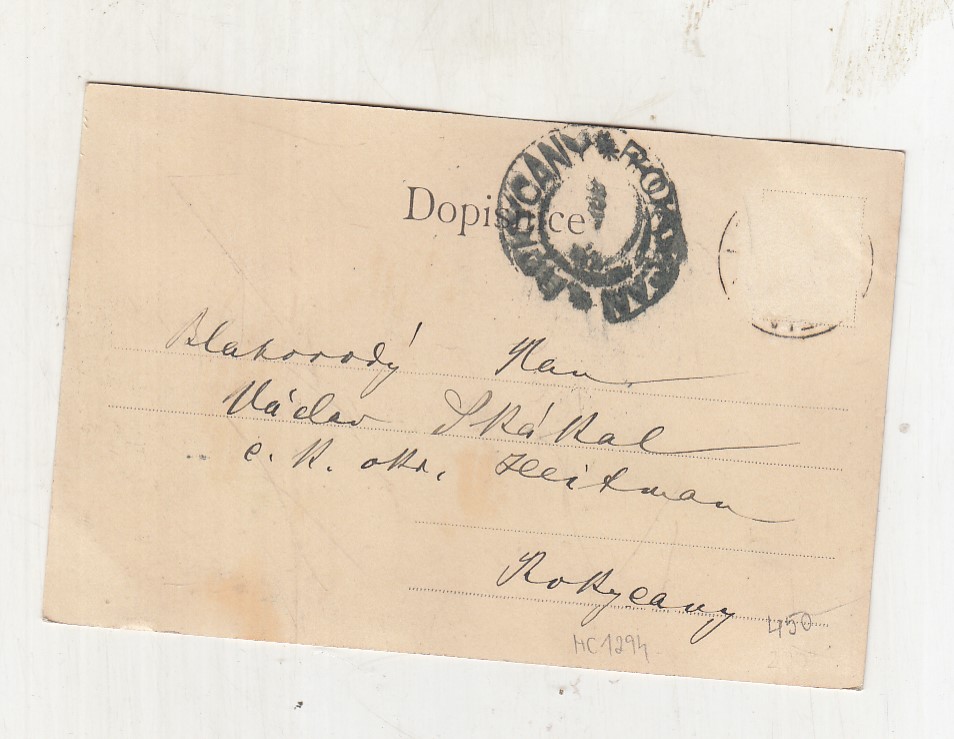 Dopisnice
ROKYCANY * ROKYCAN
Blahorodý Pan
Václav Skákal
c. k. okr. Hejtman
Rokycany
450
HC1294